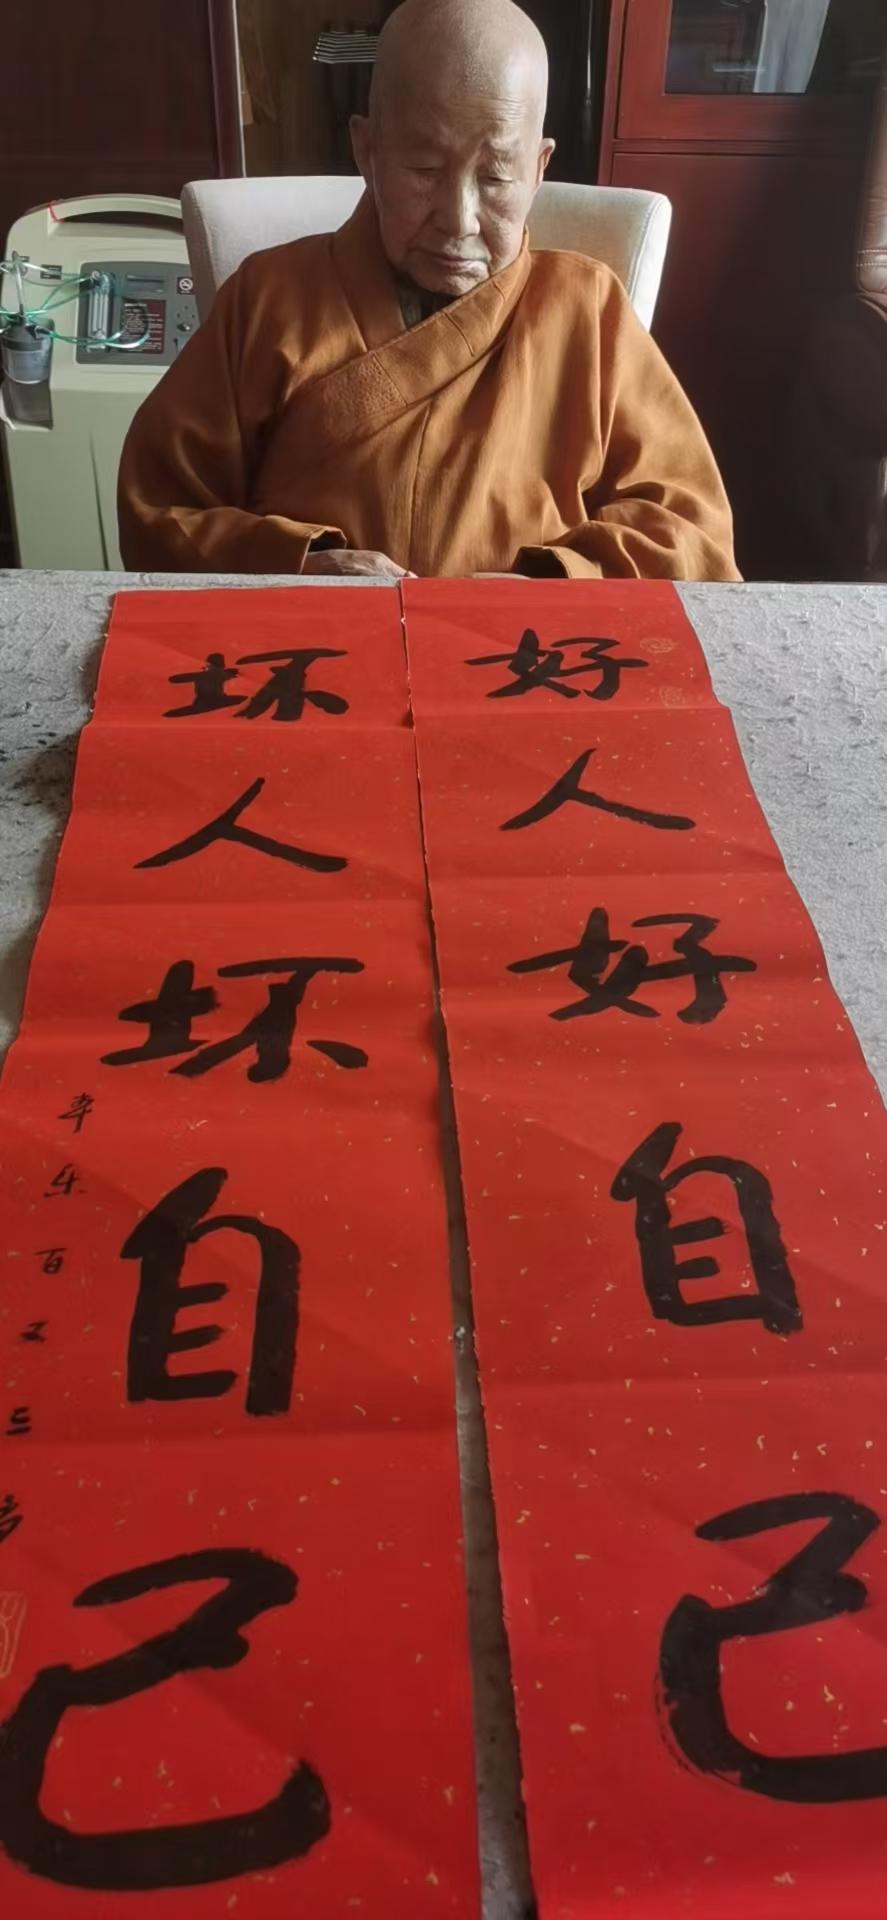 好人好自己
坏人坏自己
本乐百又三岁